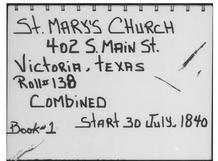 St. Mary's Church
402 S. Main St.
Victoria, Texas
Roll# 138
Combined
Book# 1 Start 30 July, 1840